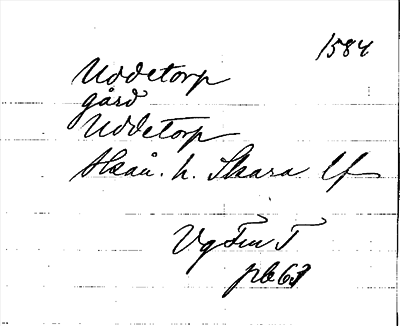 1584
Uddetorp
gård
Uddetorp
Skån. h. Skara lf
Vg Fm T
pb 63